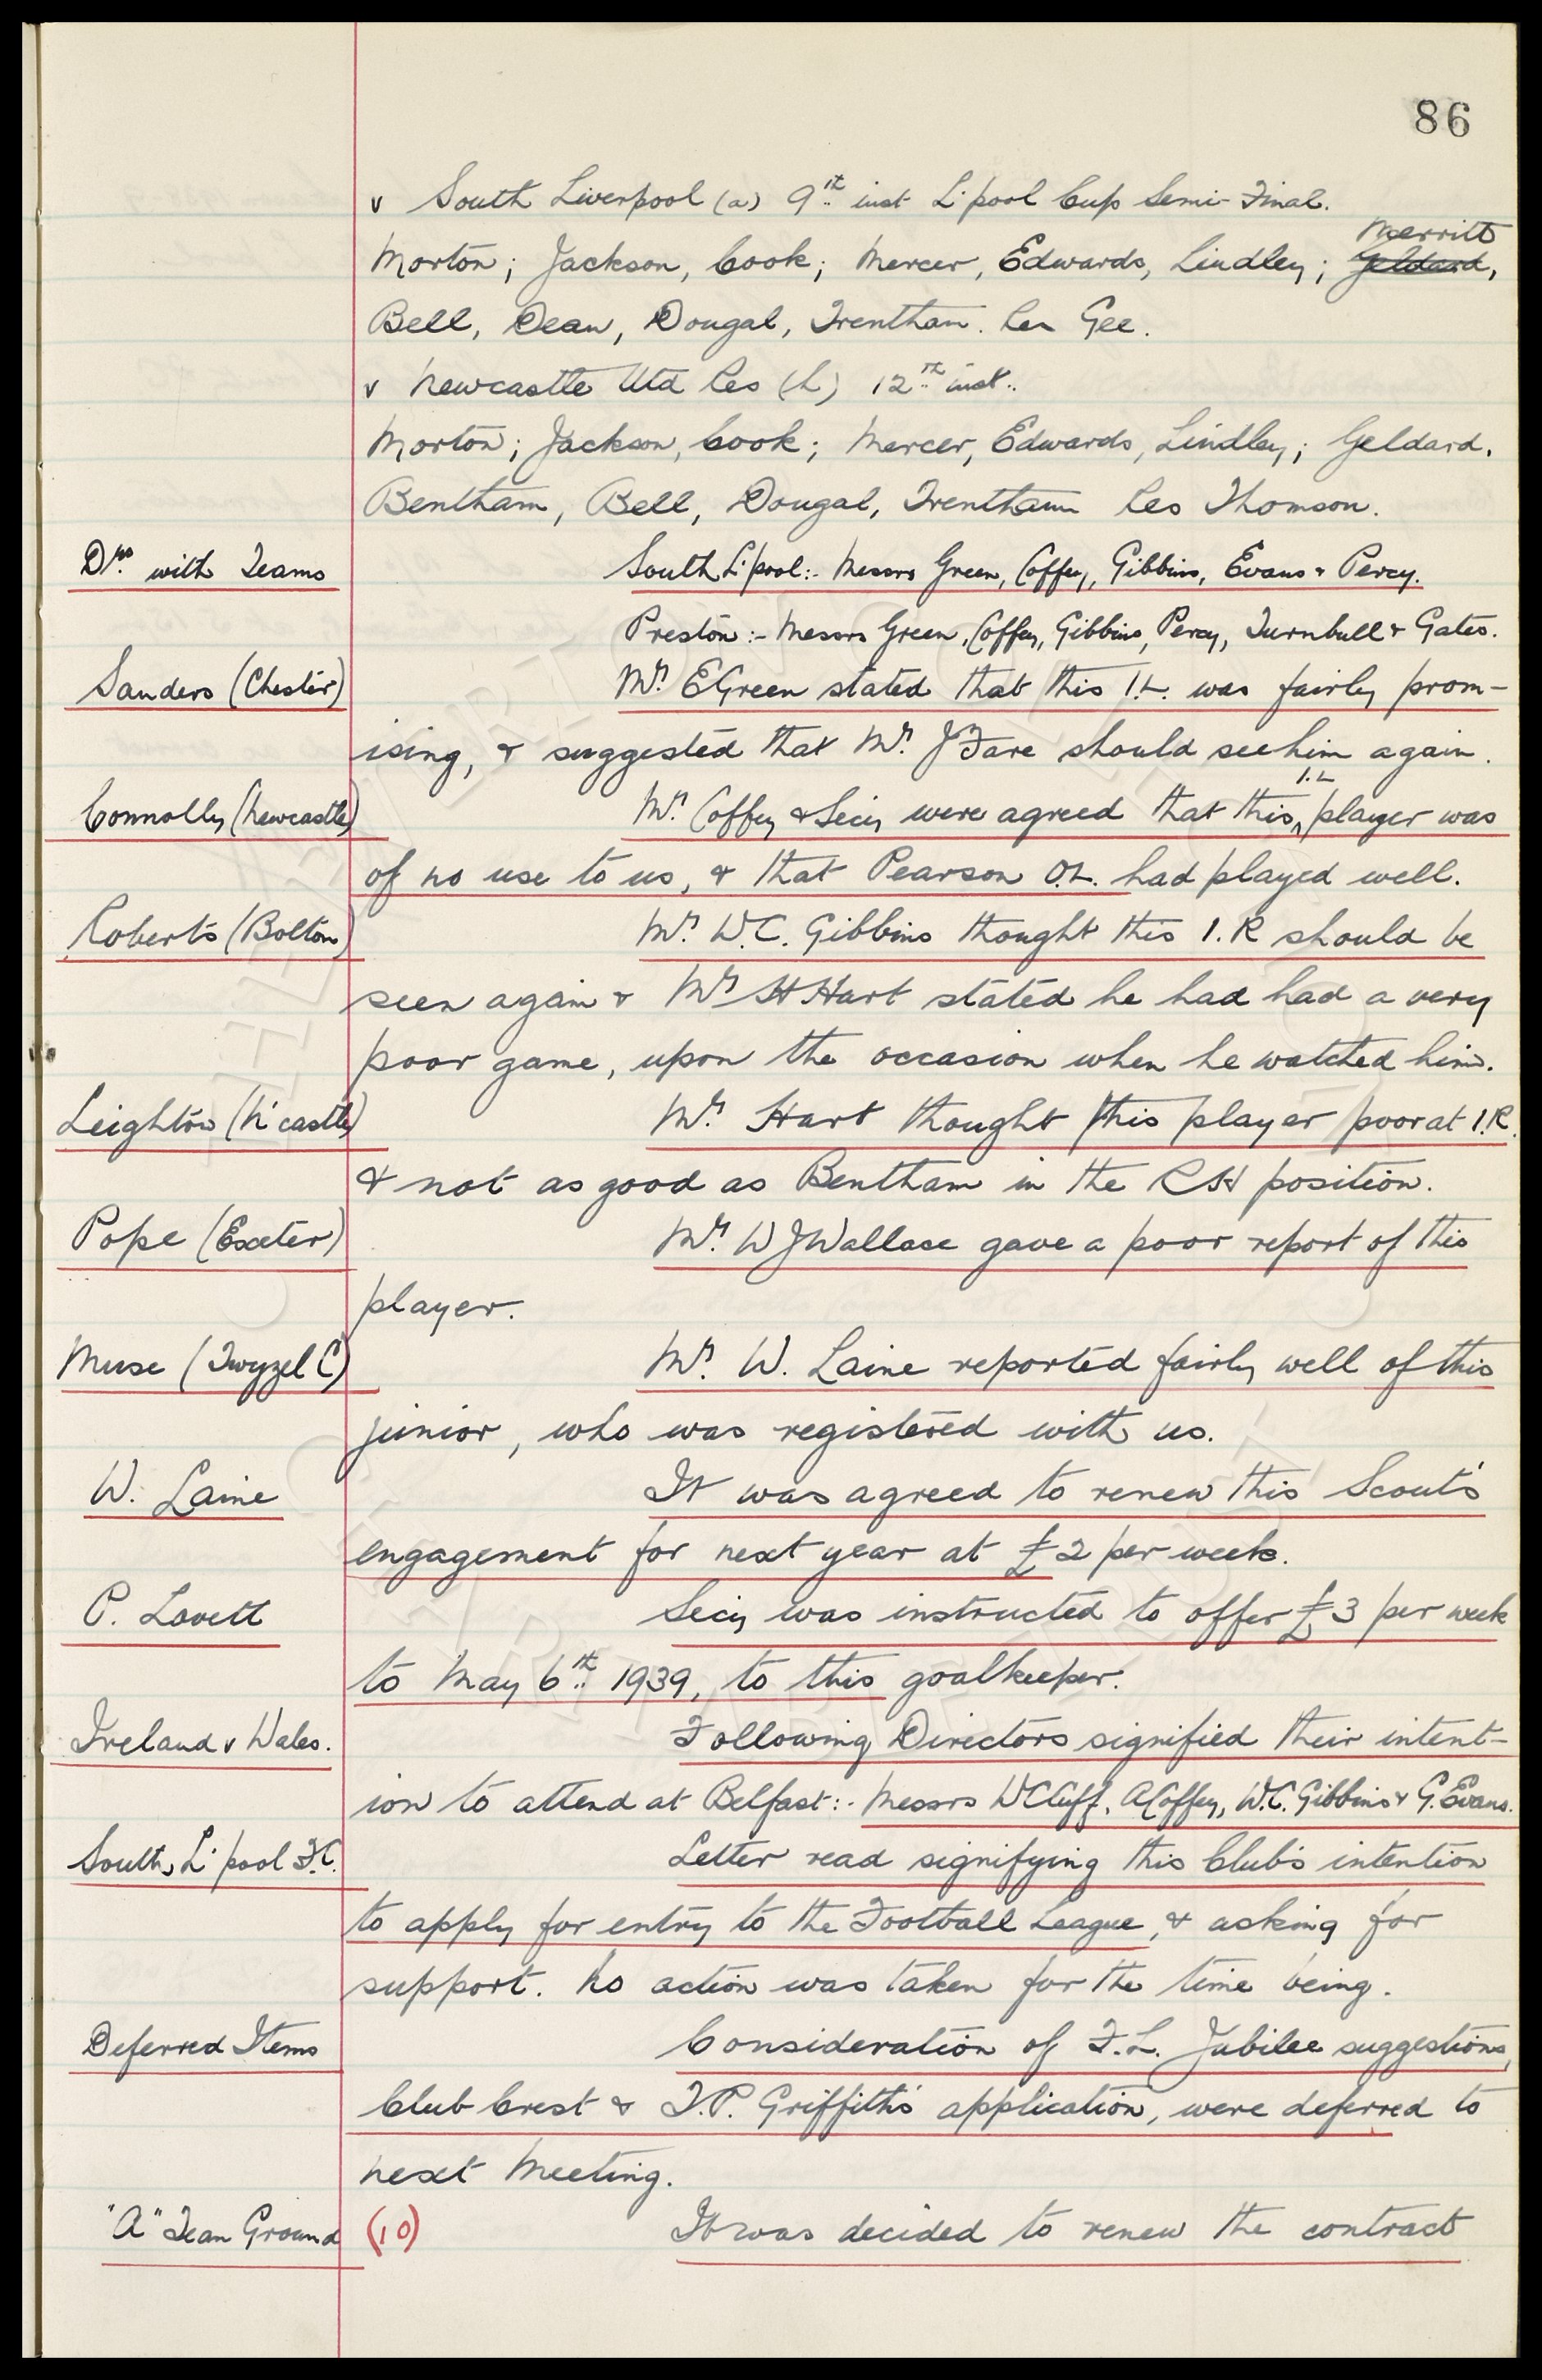 86
v South Liverpool (a) 9th inst L'pool Cup Semi-Final.
Merritt
Morton; Jackson, Cook; Mercer, Edwards, Lindley; Geldard,
Bell, Dean, Dougal, Trentham. Res Gee.
v Newcastle Utd Res (h) 12th inst.
Morton; Jackson, Cook; Mercer, Edwards, Lindley; Geldard.
Bentham, Bell, Dougal, Trentham Res Thomson.
Drs with Teams South L'pool:- Messrs Green, Coffey, Gibbins, Evans & Percy.
Preston:- Messrs Green, Coffey, Gibbins, Percy, Turnbull & Gates.
Sanders (Chester) Mr. E Green stated that this I.L. was fairly prom-
ising, & suggested that Mr. J Fare should see him again.
I.L
Connolly (Newcastle) Mr. Coffey & Secy were agreed that this player was
of no use to us, & that Pearson O.L. had played well.
Roberts (Bolton) Mr. W.C. Gibbins thought this I.R should be
seen again & Mr H Hart stated he had had a very
poor game, upon the occasion when he watched him.
Leighton (N'castle) Mr. Hart thought this player poor at I.R.
& not as good as Bentham in the RH position.
Pope (Exeter) Mr. W J Wallace gave a poor report of this
player.
Muse (Twyzel C) Mr. W. Laine reported fairly well of this
junior, who was registered with us.
W. Laine It was agreed to renew this Scout's
engagement for next year at £2 per week.
P. Lovett Secy was instructed to offer £3 per week
to May 6th 1939, to this goalkeeper.
Ireland v Wales. Following Directors signified their intent-
ion to attend at Belfast:- Messrs W C Cuff, A Coffey, W.C. Gibbins & G. Evans.
South L'pool F.C. Letter read signifying this Club's intention
to apply for entry to the Football League, & asking for
support. No action was taken for the time being.
Deferred Items Consideration of F.L. Jubilee suggestions,
Club Crest & T.P. Griffith's application, were deferred to
next Meeting.
"A" Team Ground (10) It was decided to renew the contract